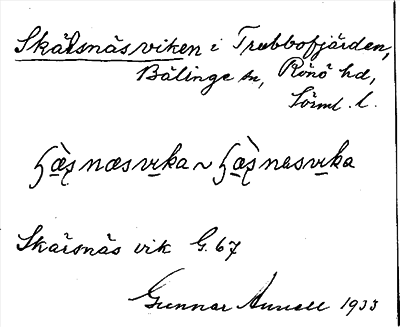 Skärsnäsviken i Trobbofjärden,
Bälinge sn, Rönö hd,
Sörml. l.
ɧæ̀ʂnæsvika ~ ɧæ̀ʂnasvika
Skärsnäs vik G. 67
Gunnar 1933